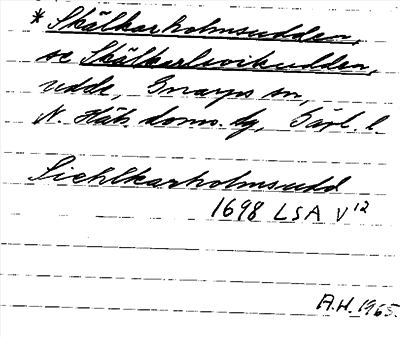 * Skälkarholmsudden,
se Skälkarlsvikudden,
udde, Gnarps sn,
N. Häls. doms. hg, Gävl. l.
Siehlkarholmsudd
1698 LSA V 12
A.H. 1965.